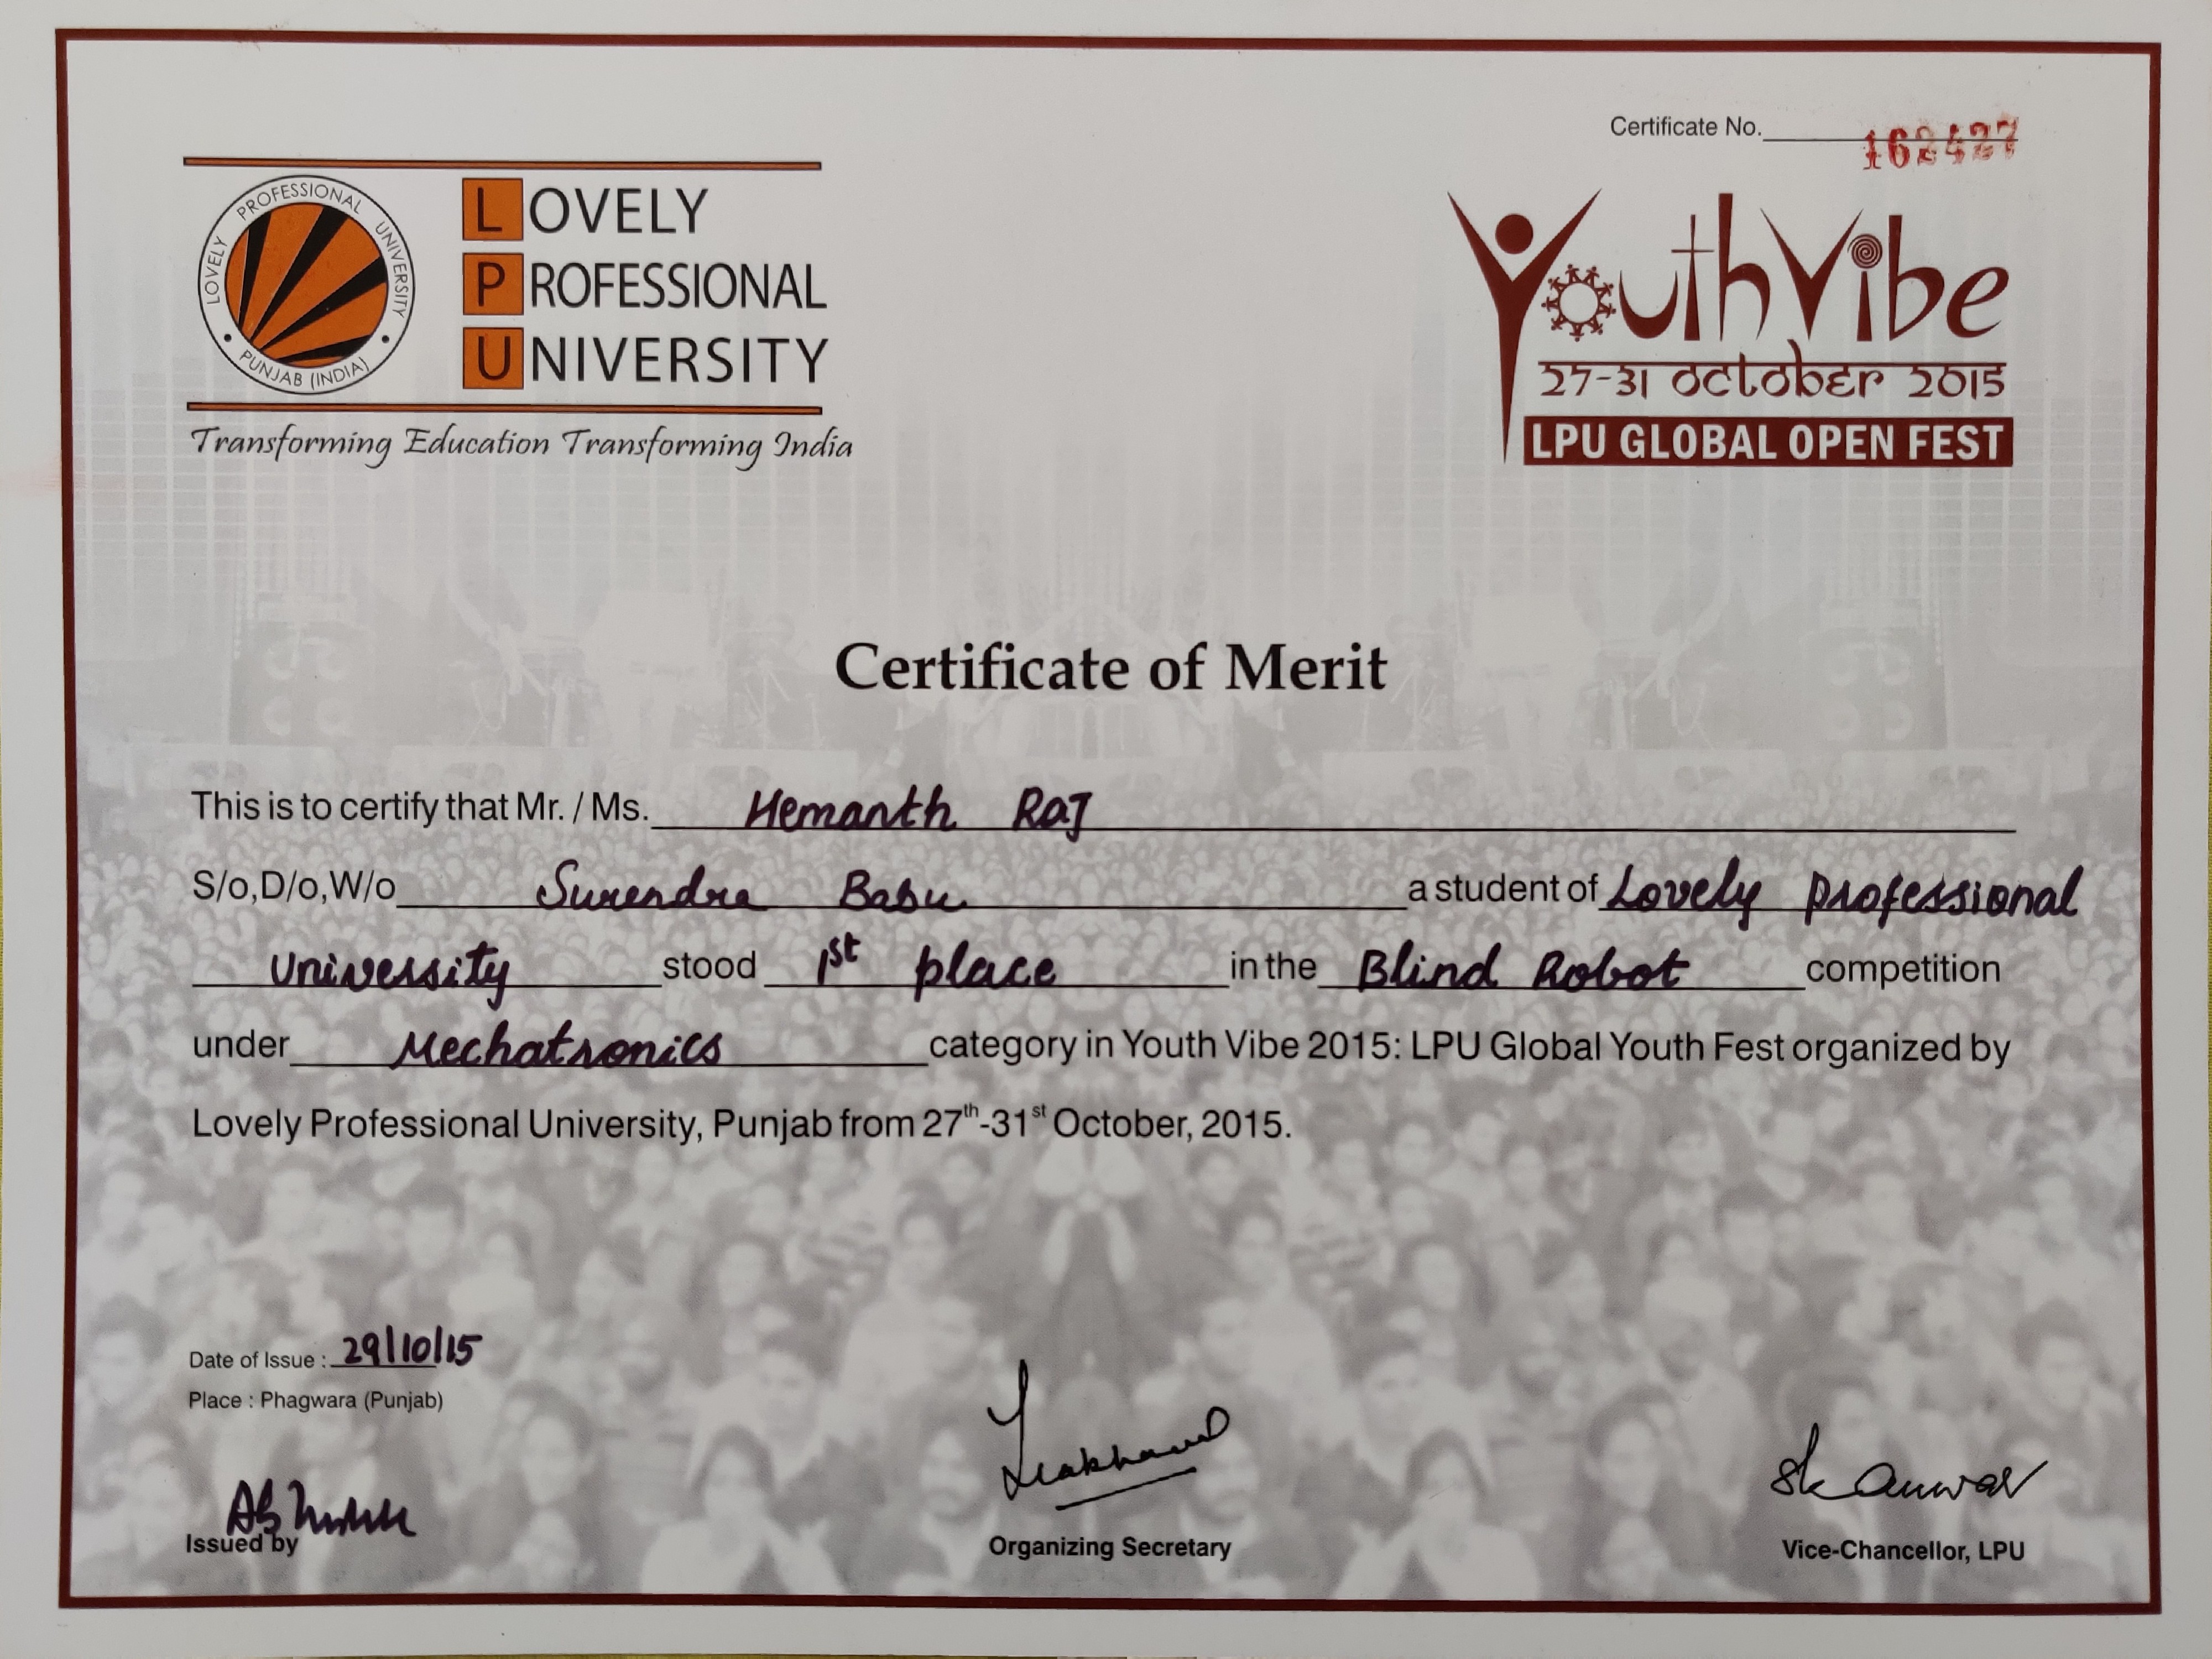 Certificate No. 162427
LOVELY PROFESSIONAL UNIVERSITY
PUNJAB (INDIA)
LOVELY
PROFESSIONAL
UNIVERSITY
Transforming Education Transforming India
YouthVibe
27-31 October 2015
LPU GLOBAL OPEN FEST
Certificate of Merit
This is to certify that Mr. / Ms. Hemanth Raj
S/o,D/o,W/o Surendra Babu a student of Lovely Professional
University stood 1st place in the Blind Robot competition
under Mechatronics category in Youth Vibe 2015: LPU Global Youth Fest organized by
Lovely Professional University, Punjab from 27th-31st October, 2015.
Date of Issue : 29/10/15
Place : Phagwara (Punjab)
Sk Anwar
Issued by
Organizing Secretary
Vice-Chancellor, LPU